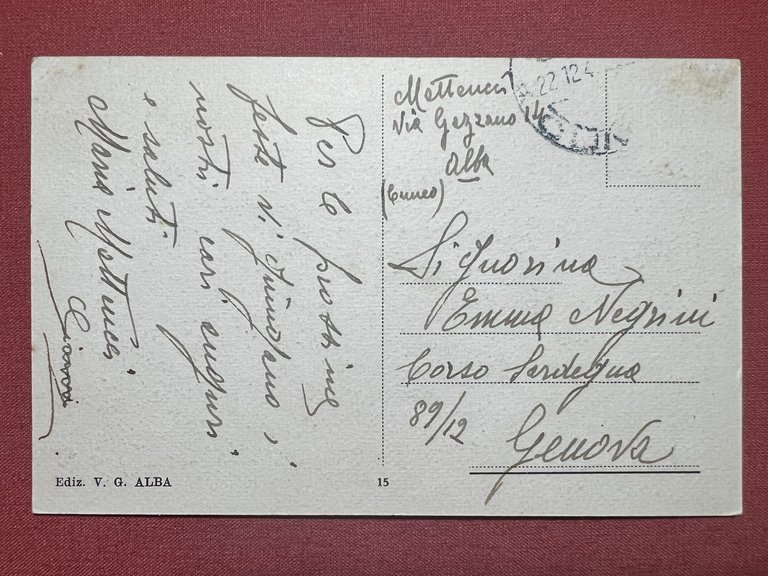 Per le prossime
feste vi giungano,
nostri cari auguri
e saluti
Maria Matteucci
Matteucci
Via Gazzano 14
Alba
(Cuneo)
22.12.4
Signorina
Emma Negrini
Corso Sardegna
89/12
Genova
Ediz. V. G. ALBA
15